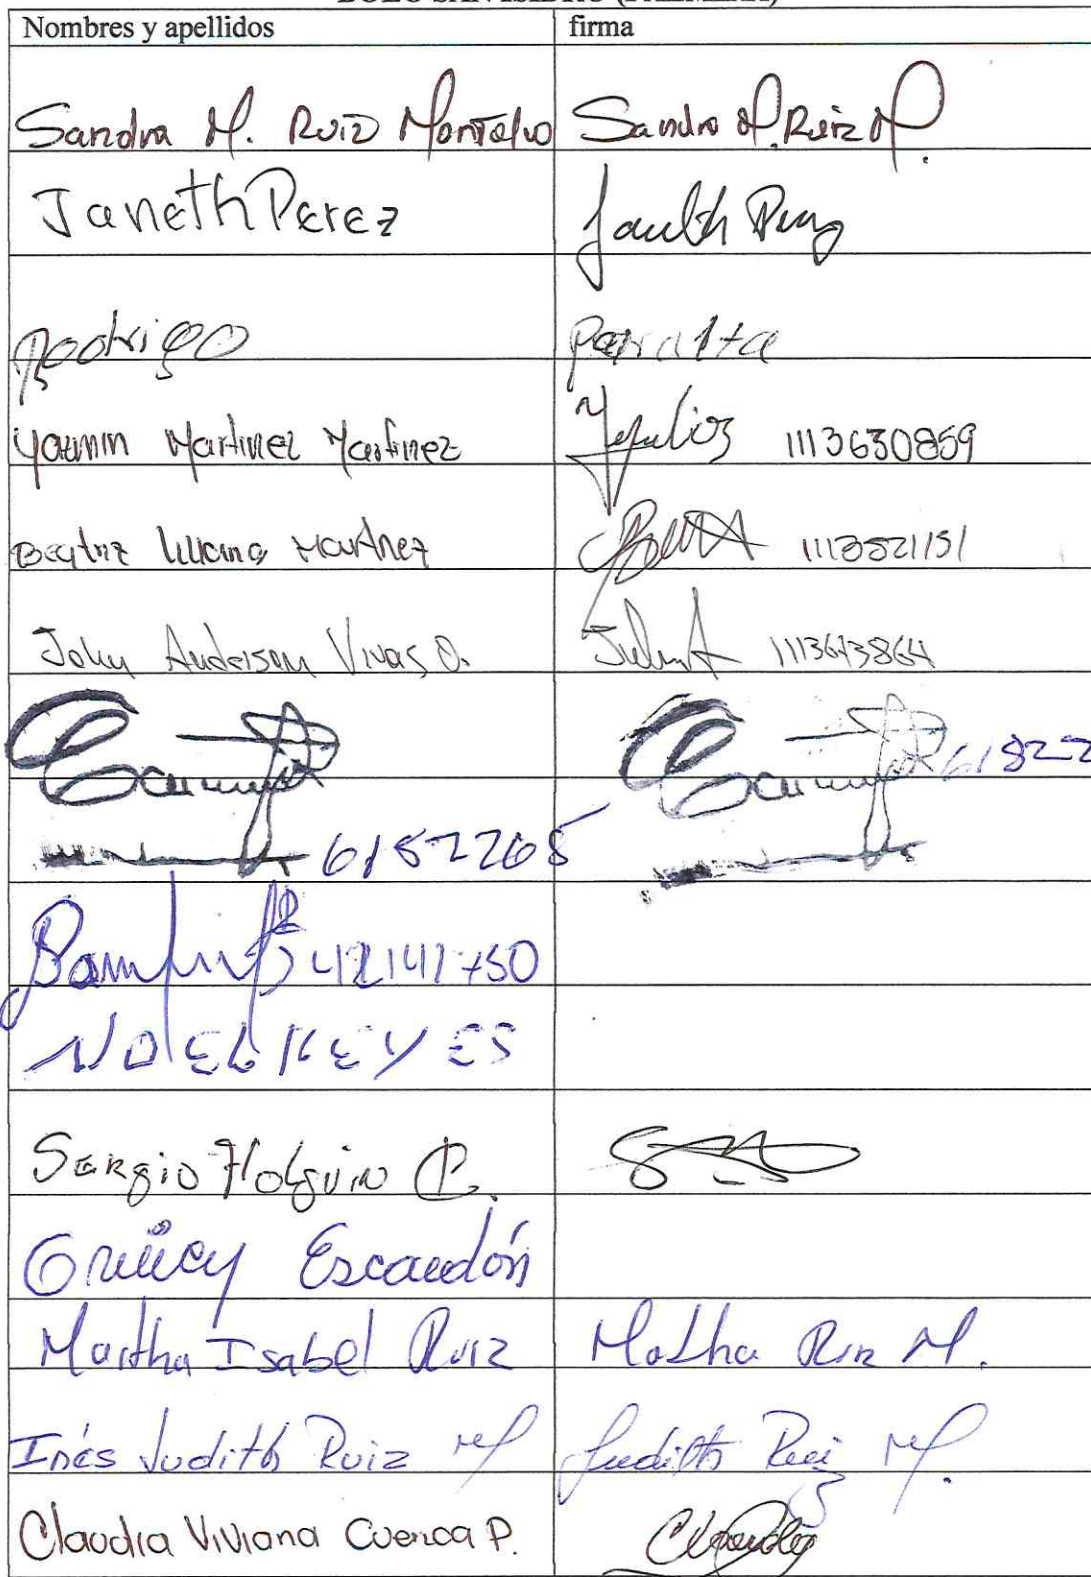 BOLO SAN ISIDRO (PALMIRA)
Nombres y apellidos firma
Sandra M. Ruiz Montalvo Sandra M. Ruiz M.
Janeth Perez Janeth Perez
Rodrigo Peralta
Yazmin Martinez Martinez 1113630859
Beatriz Liliana Martinez 1113521151
John Anderson Vivas O. 1113643864
6182
6152265
NOEL REYES
Sergio Holguin C.
Escandón
Martha Isabel Ruiz Martha Ruiz M.
Inés Judith Ruiz M Judith Ruiz M.
Claudia Viviana Cuenca P. Claudia